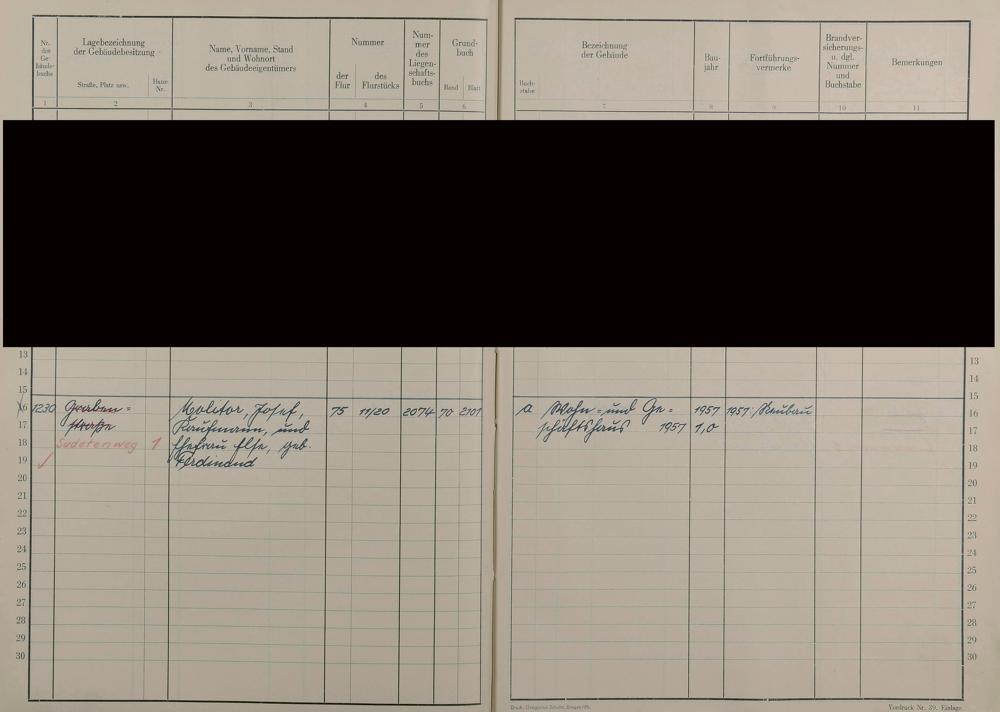 Nr.
des
Ge-
bäude-
buchs
Lagebezeichnung
der Gebäudebesitzung
Straße, Platz usw.
Haus-
Nr.
Name, Vorname, Stand
und Wohnort
des Gebäudeeigentümers
Nummer
der
Flur
des
Flurstücks
Num-
mer
des
Liegen-
schafts-
buchs
Grund-
buch
Band
Blatt
1
2
3
4
5
6
Buch-
stabe
Bezeichnung
der Gebäude
Bau-
jahr
Fortführungs-
vermerke
Brandver-
sicherungs-
u. dgl.
Nummer
und
Buchstabe
Bemerkungen
7
8
9
10
11
13
14
15
16 1230 Graben- Molitor, Josef, 75 11/20 2074 70 2101
17 straße Kaufmann, und
18 Sudetenweg 1 Ehefrau Else, geb.
19 Ferdinand
20
21
22
23
24
25
26
27
28
29
30
13
14
15
a Wohn- und Ge- 1957 1957, Neubau 16
schäftshaus 1957 1,0 17
18
19
20
21
22
23
24
25
26
27
28
29
30
Vordruck Nr. 39. Einlage